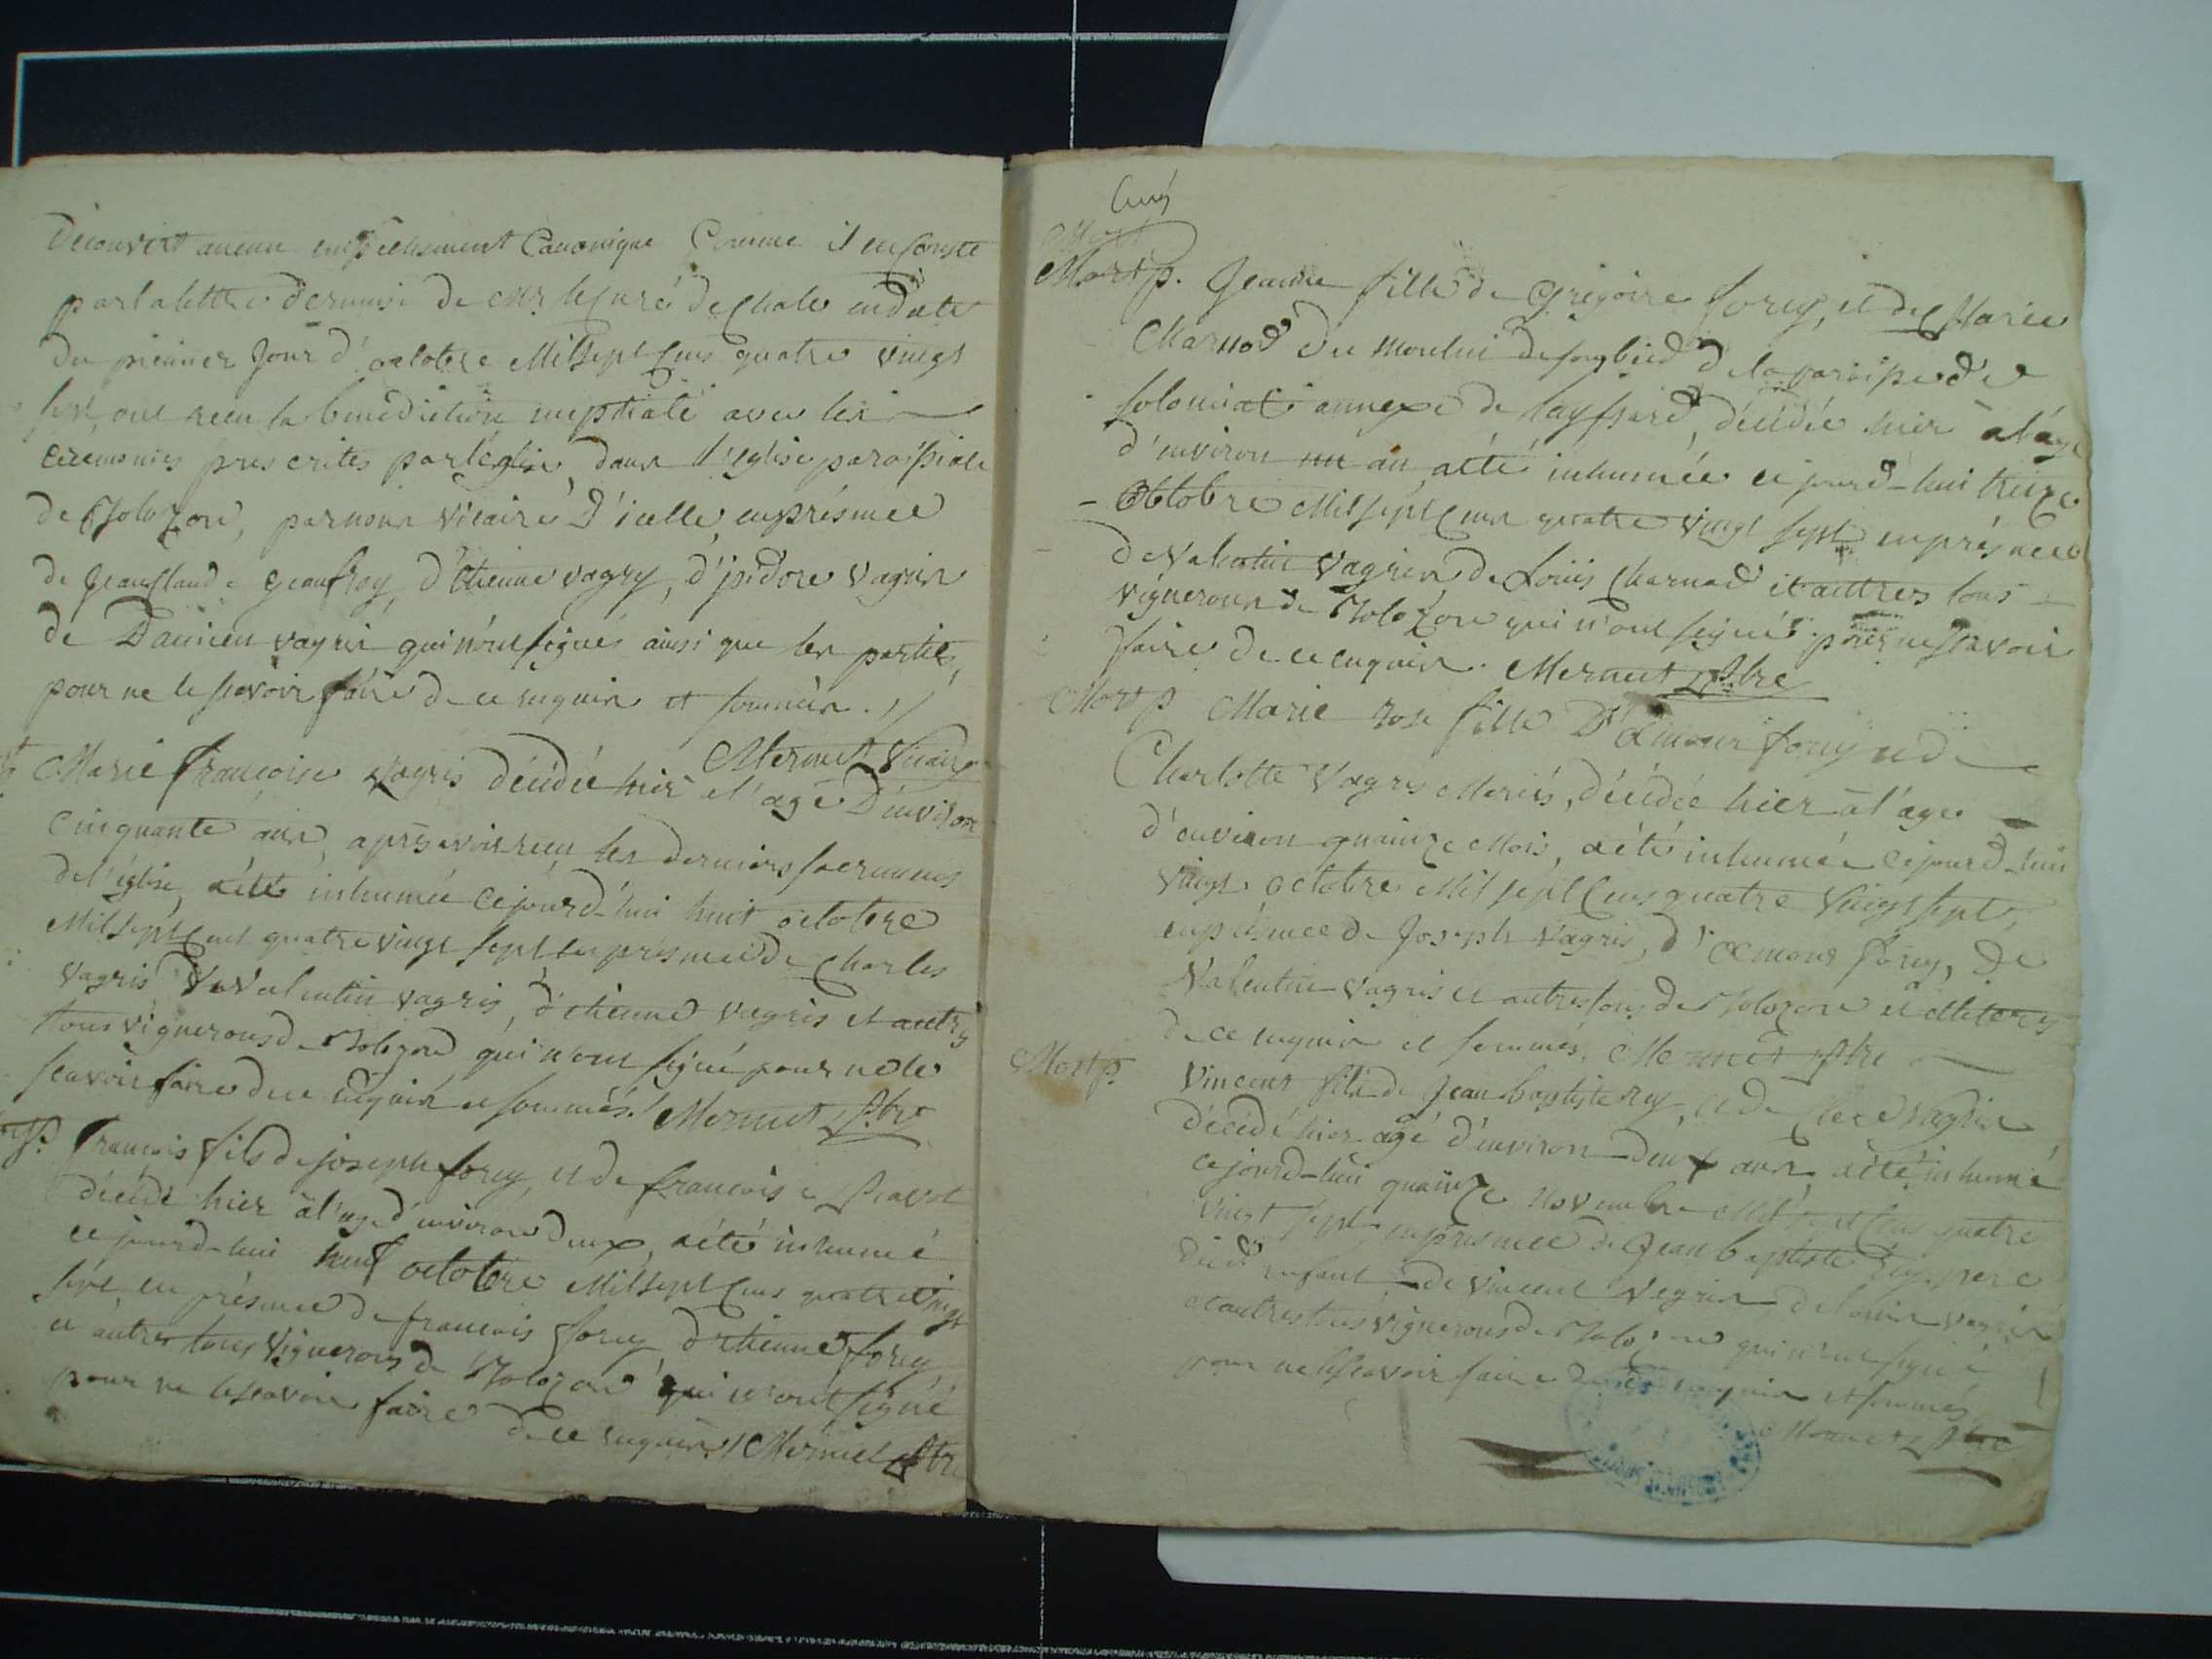 Decouvert aucun empechement Canonique Comme il en Conste
par la lettre de remise de Mr. le Curé de Chale en date
du prémier Jour d'octobre Mil Sept Cens quatre vingt
sept, ont recu la bénédiction nuptiale avec les
cérémonies prescrites par l'église, dans l'église paroissiale
de Molozon, par nous vicaire d'icelle, en présence
de Jean Claude Geanfroy, d'Etienne vagry, d'isidore vagrin
de Damien vagrin qui n'ont signés ainsi que les parties,
pour ne le scavoir faire de ce enquis et sommés.
Mermet Vicaire
Marie françoise vagris décédée hier à l'age D'environ
Cinquante ans, après avoir recu les derniers sacremens
de l'église, a été inhumée Cejourd-hui huit octobre
Mil Sept Cent quatre vingt sept en présence de Charles
vagris de valentin vagris, d'etienne vagris et autres
tous vignerons de Molozon qui n'ont signé pour ne le
scavoir faire de ce enquis et sommés. Mermet Ptre
françois fils de joseph forey, et de françoise Pravot
décédé hier à l'age d'environ deux, a été inhumé
ce jourd-hui neuf octobre Mil Sept Cens quatre vingt
sept en présence de françois forey d'etienne forey,
et autres tous vignerons de Molozon qui n'ont signé
pour ne le scavoir faire de ce enquis Mermet Ptre
Cinq
Mort p. Jeanne fille de Grégoire forey, et de Marie
Charnod du moulin de sonbied de la paroisse de
solomiat annexe de Layssard, décédée hier à l'age
d'environ un an, a été inhumée ce jourd-hui treize
octobre Mil Sept Cens quatre vingt sept en présence
de Valentin Vagrin, de Louis Charnod et autres tous
vignerons de Molozon qui n'ont signé pour ne scavoir
faire de ce enquis. Mermet Ptre
Mort p Marie rose fille D'amour forey et de
Charlotte Vagris Mariés, décédée hier à l'age
d'environ quinze Mois, a été inhumée ce jourd-hui
vingt octobre Mil sept Cens quatre vingt sept,
en présence de Joseph Vagris, d'amour forey, de
Valentin vagris et autres tous de Molozon et illiterés
de ce enquis et sommés, Mermet Ptre
Mort p. Vincent fils de Jean baptiste rey, et de vagrin
décédé hier agé d'environ deux ans, a été inhumé
ce jourd-hui quinze Novembre Mil sept Cens quatre
vingt sept, en présence de Jean baptiste Rey, pere
dud enfant, de vincent Vegrin de Louis vagrin
et autres tous vignerons de Molozon qui n'ont signé
pour ne le scavoir faire de ce enquis et sommés
Mermet Ptre